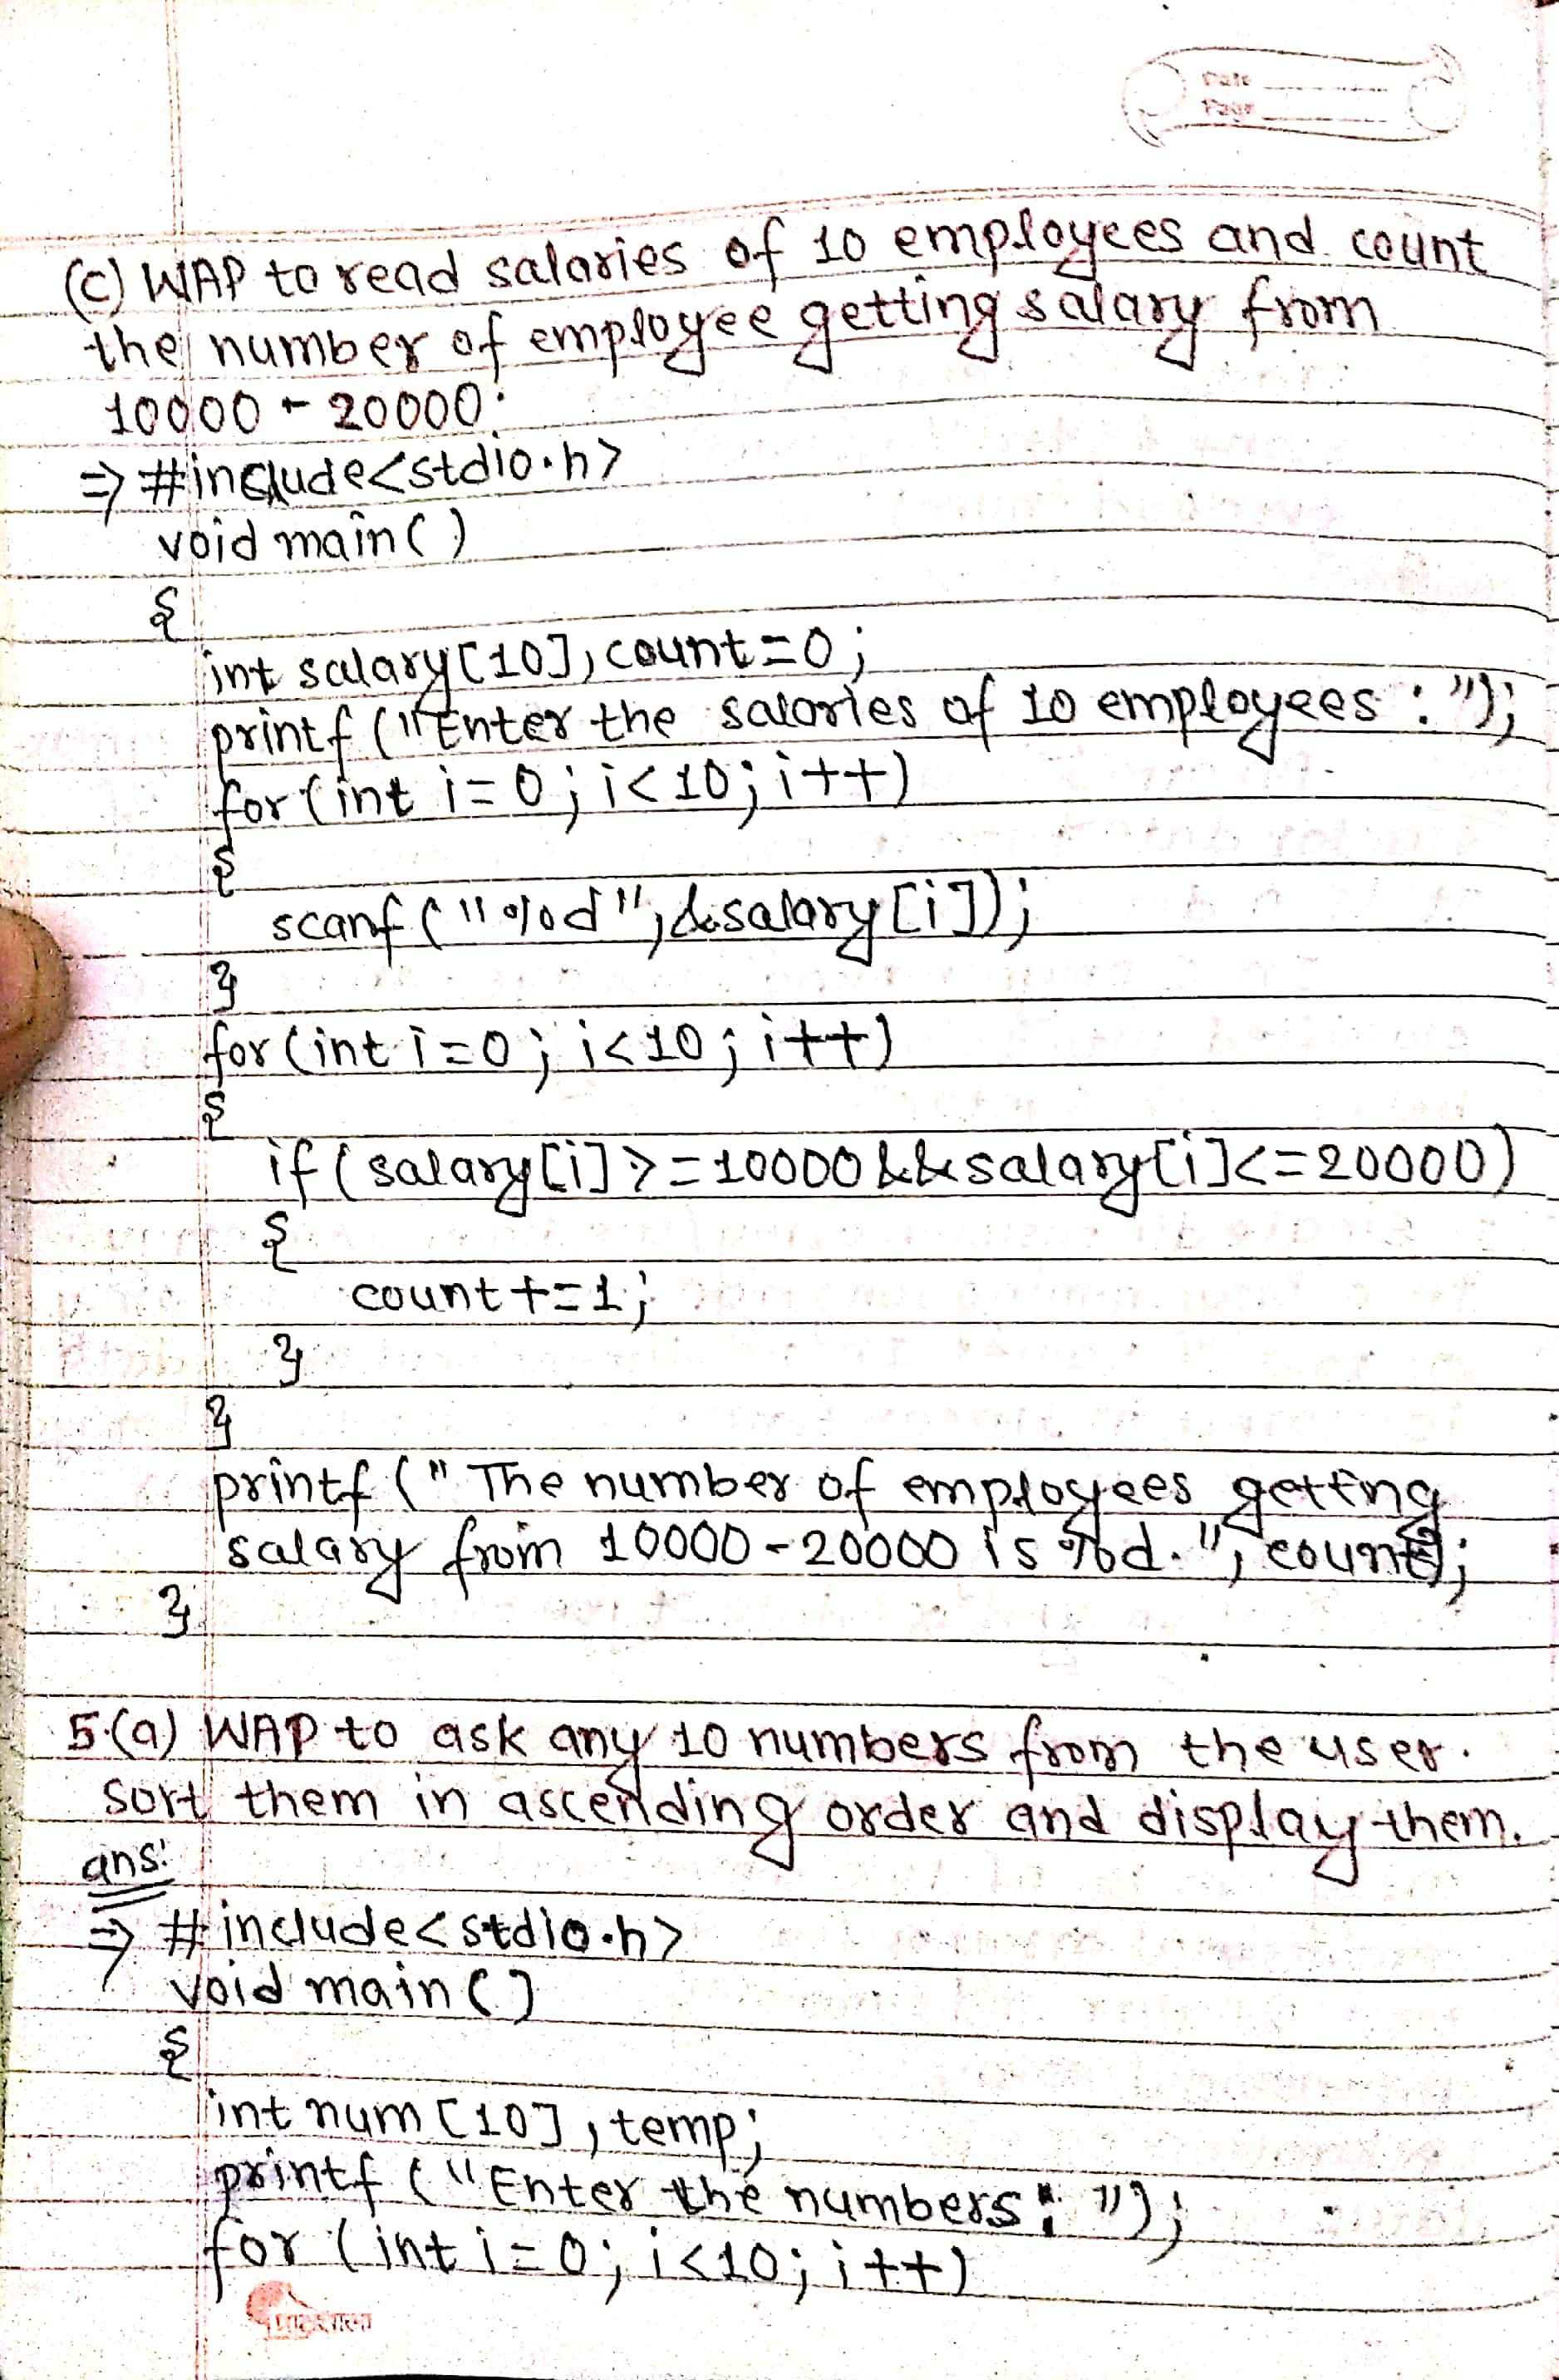 Date
Page
(C) WAP to read salaries of 10 employees and count
the number of employee getting salary from
10000 - 20000.
⇒ #include<stdio.h>
void main()
{
int salary[10], count=0;
printf("Enter the salaries of 10 employees : ");
for(int i=0; i<10; i++)
{
scanf("%d", &salary[i]);
}
for(int i=0; i<10; i++)
{
if(salary[i]>=10000 && salary[i]<=20000)
{
count+=1;
}
}
printf(" The number of employees getting
salary from 10000-20000 is %d.", count);
}
5.(a) WAP to ask any 10 numbers from the user.
Sort them in ascending order and display them.
ans:
⇒ #include<stdio.h>
void main()
{
int num[10], temp;
printf("Enter the numbers: ");
for (int i=0; i<10; i++)